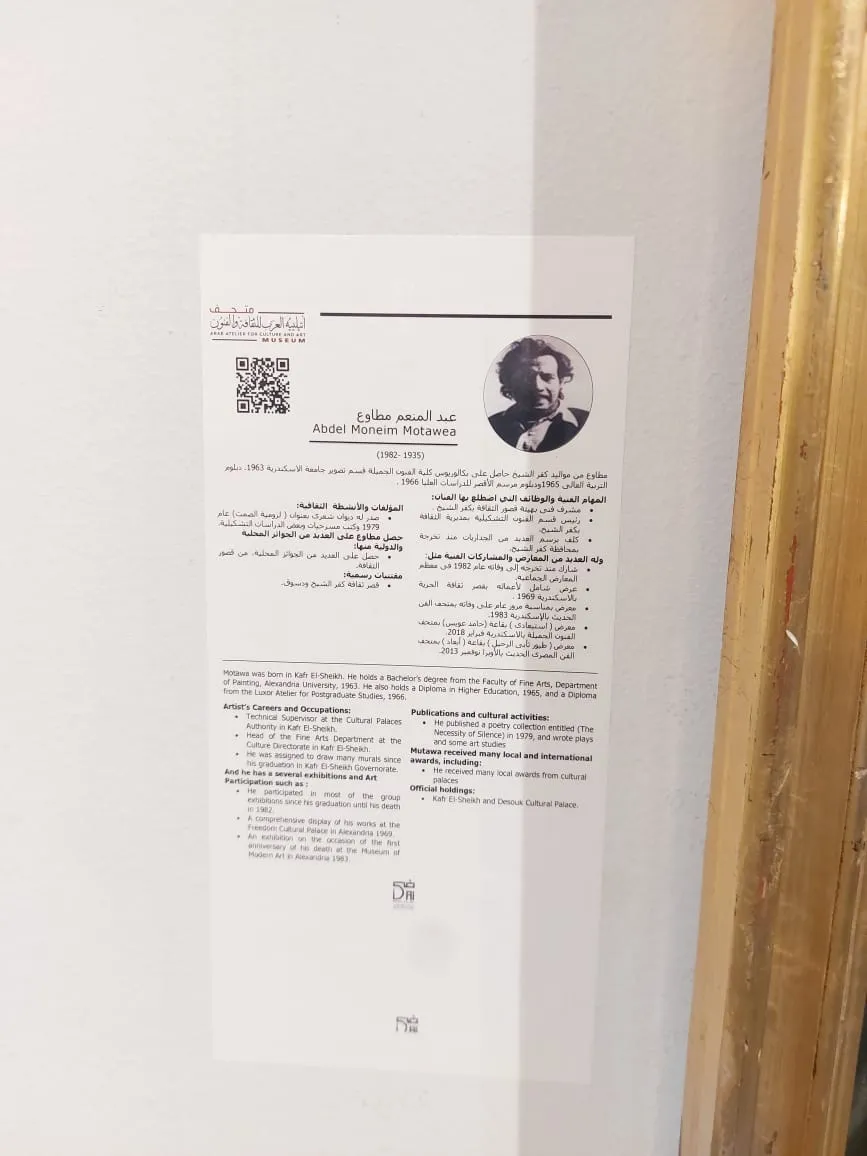 متحف
أتيليه العرب للثقافة والفنون
ARAB ATELIER FOR CULTURE AND ART
MUSEUM
عبد المنعم مطاوع
Abdel Moneim Motawea
(1982- 1935)
مطاوع من مواليد كفر الشيخ حاصل على بكالوريوس كلية الفنون الجميلة قسم تصوير جامعة الاسكندرية 1963، دبلوم
التربية العالى 1965ودبلوم مرسم الأقصر للدراسات العليا 1966 .
المهام الفنية والوظائف التي اضطلع بها الفنان:
مشرف فنى بهيئة قصور الثقافة بكفر الشيخ .
رئيس قسم الفنون التشكيلية بمديرية الثقافة
بكفر الشيخ.
كلف برسم العديد من الجداريات منذ تخرجة
بمحافظة كفر الشيخ.
وله العديد من المعارض والمشاركات الفنية مثل:
شارك منذ تخرجه إلى وفاته عام 1982 فى معظم
المعارض الجماعية.
عرض شامل لأعماله بقصر ثقافة الحرية
بالاسكندرية 1969 .
معرض بمناسبة مرور عام على وفاته بمتحف الفن
الحديث بالإسكندرية 1983.
معرض ( استيعادى ) بقاعة (حامد عويس) بمتحف
الفنون الجميلة بالاسكندرية فبراير 2018.
معرض ( طيور تأبى الرحيل ) بقاعة ( أبعاد ) بمتحف
الفن المصرى الحديث بالأوبرا نوفمبر 2013.
المؤلفات والأنشطة الثقافية:
صدر له ديوان شعرى بعنوان ( لزومية الصمت) عام
1979 وكتب مسرحيات وبعض الدراسات التشكيلية.
حصل مطاوع على العديد من الجوائز المحلية
والدولية منها:
حصل على العديد من الجوائز المحلية، من قصور
الثقافة.
مقتنيات رسمية:
قصر ثقافة كفر الشيخ ودسوق.
Motawa was born in Kafr El-Sheikh. He holds a Bachelor's degree from the Faculty of Fine Arts, Department
of Painting, Alexandria University, 1963. He also holds a Diploma in Higher Education, 1965, and a Diploma
from the Luxor Atelier for Postgraduate Studies, 1966.
Artist's Careers and Occupations:
Technical Supervisor at the Cultural Palaces
Authority in Kafr El-Sheikh.
Head of the Fine Arts Department at the
Culture Directorate in Kafr El-Sheikh.
He was assigned to draw many murals since
his graduation in Kafr El-Sheikh Governorate.
And he has a several exhibitions and Art
Participation such as :
He participated in most of the group
exhibitions since his graduation until his death
in 1982.
A comprehensive display of his works at the
Freedom Cultural Palace in Alexandria 1969.
An exhibition on the occasion of the first
anniversary of his death at the Museum of
Modern Art in Alexandria 1983.
Publications and cultural activities:
He published a poetry collection entitled (The
Necessity of Silence) in 1979, and wrote plays
and some art studies
Mutawa received many local and international
awards, including:
He received many local awards from cultural
palaces
Official holdings:
Kafr El-Sheikh and Desouk Cultural Palace.